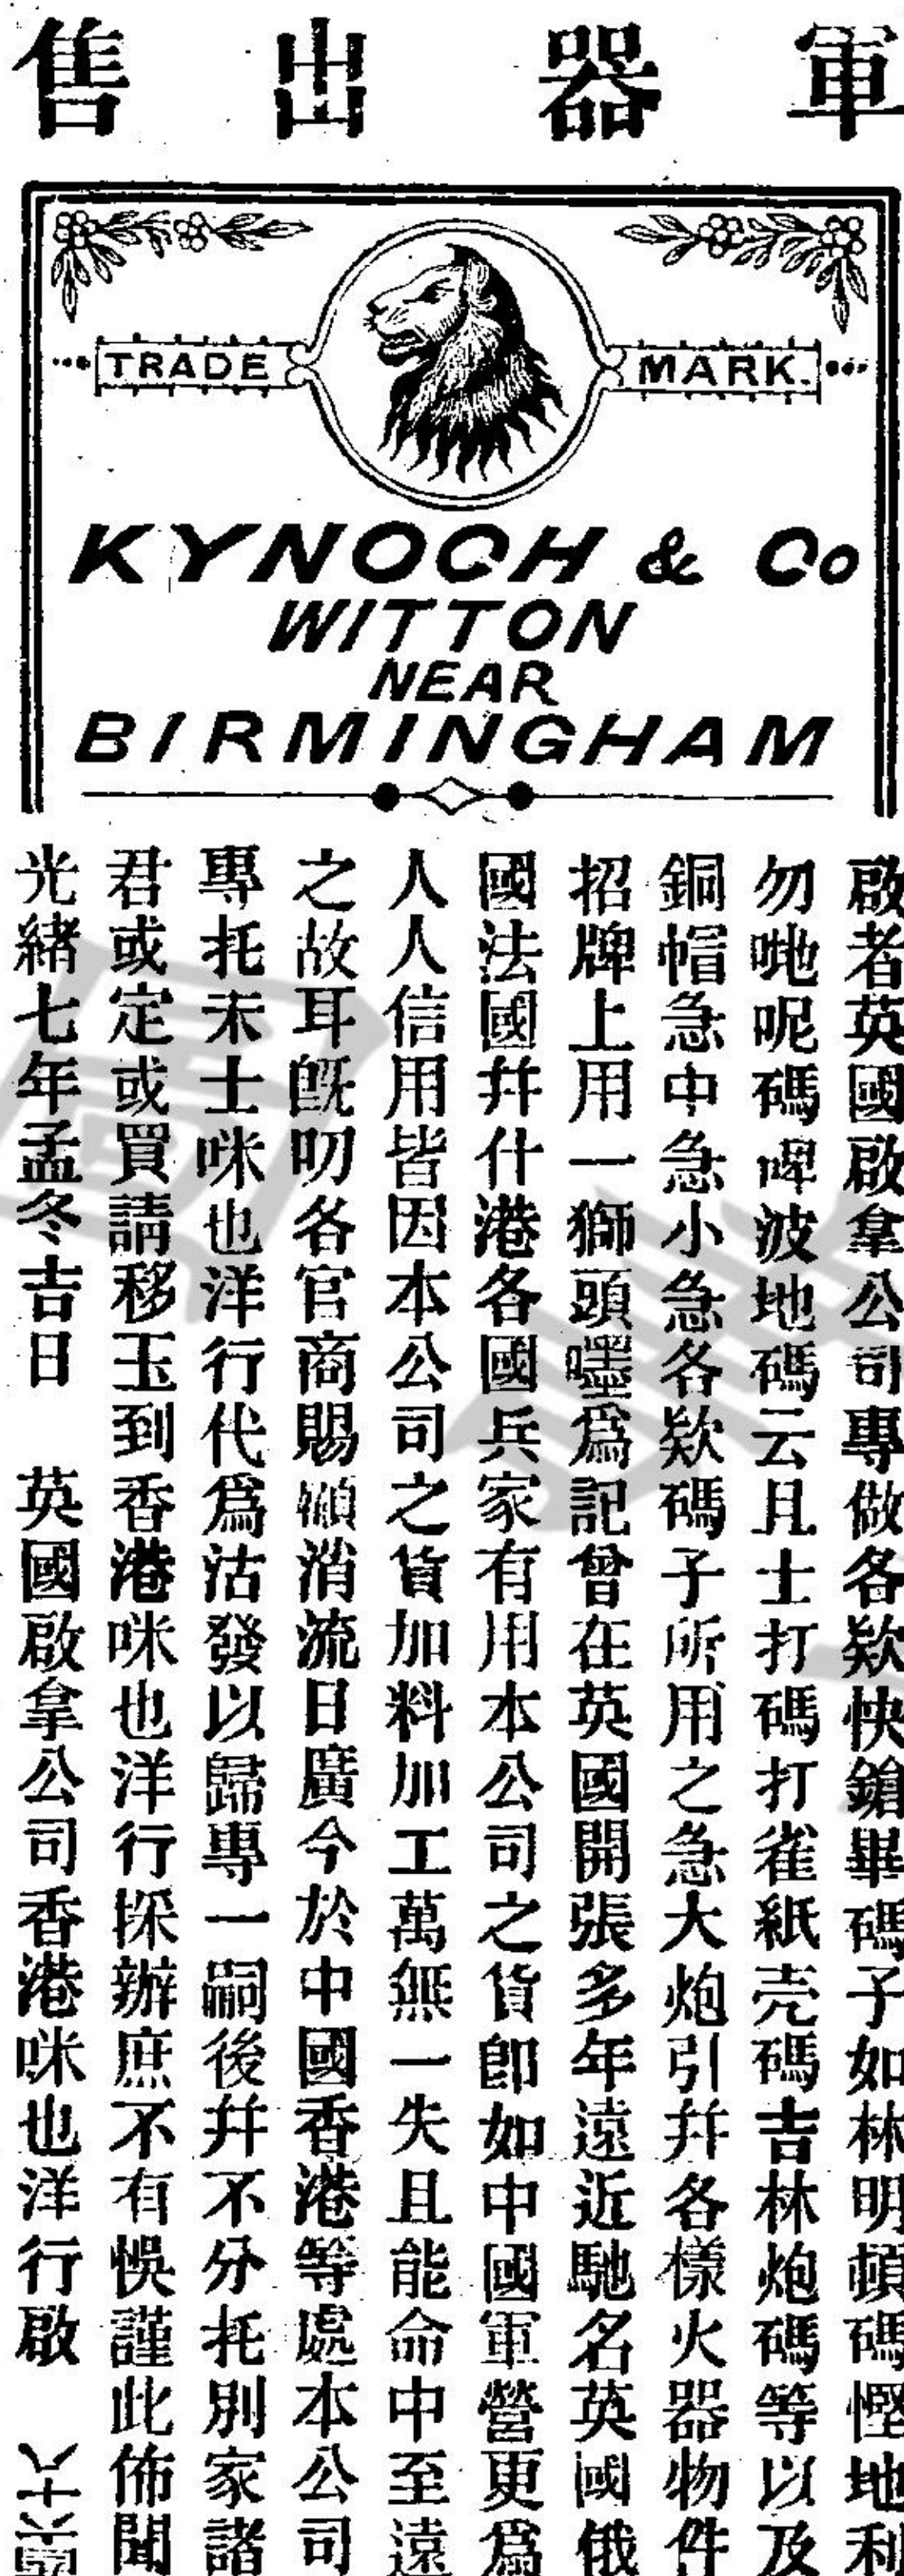 軍器出售
TRADE MARK.
KYNOCH & Co
WITTON
NEAR
BIRMINGHAM
啟者英國啟拿公司專做各欵快鎗畢碼子如林明頓碼慳地利
勿哋呢碼啤波地碼云且士打碼打雀紙壳碼吉林炮碼等以及
銅帽急中急小急各欵碼子所用之急大炮引并各樣火器物件
招牌上用一獅頭嚜爲記曾在英國開張多年遠近馳名英國俄
國法國并什港各國兵家有用本公司之貨即如中國軍營更爲
人人信用皆因本公司之貨加料加工萬無一失且能命中至遠
之故耳旣叨各官商賜顧消流日廣今於中國香港等處本公司
專托未士咪也洋行代爲沽發以歸專一嗣後并不分托別家諸
君或定或買請移玉到香港咪也洋行採辦庶不有悞謹此佈聞
光緒七年孟冬吉日 英國啟拿公司香港咪也洋行啟